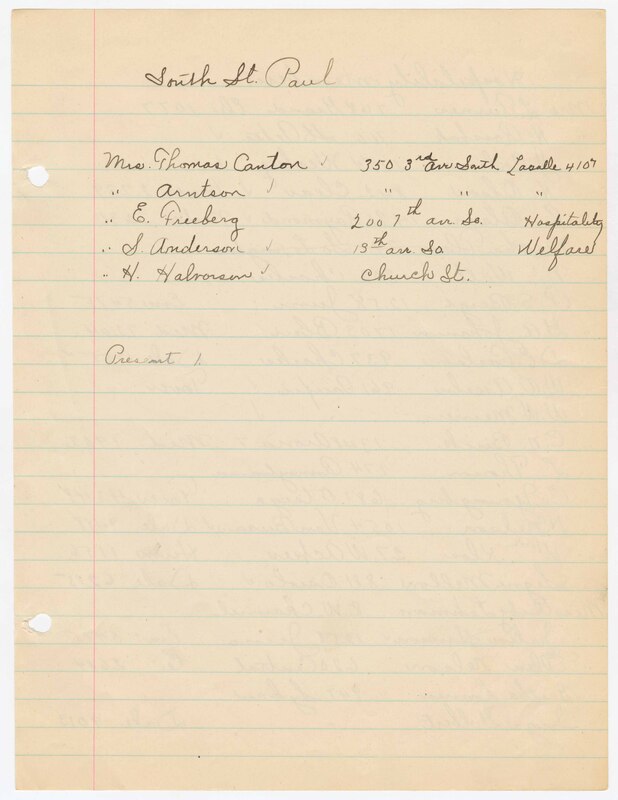 South St. Paul
Mrs. Thomas Canton ✓ 350 3rd Ave South Lasalle 4107
" Arntson ✓ " " "
" E. Freeberg 200 7th ave. So. Hospitality
" S. Anderson ✓ 13th ave. So. Welfare
" H. Halvorson ✓ Church St.
Present 1.